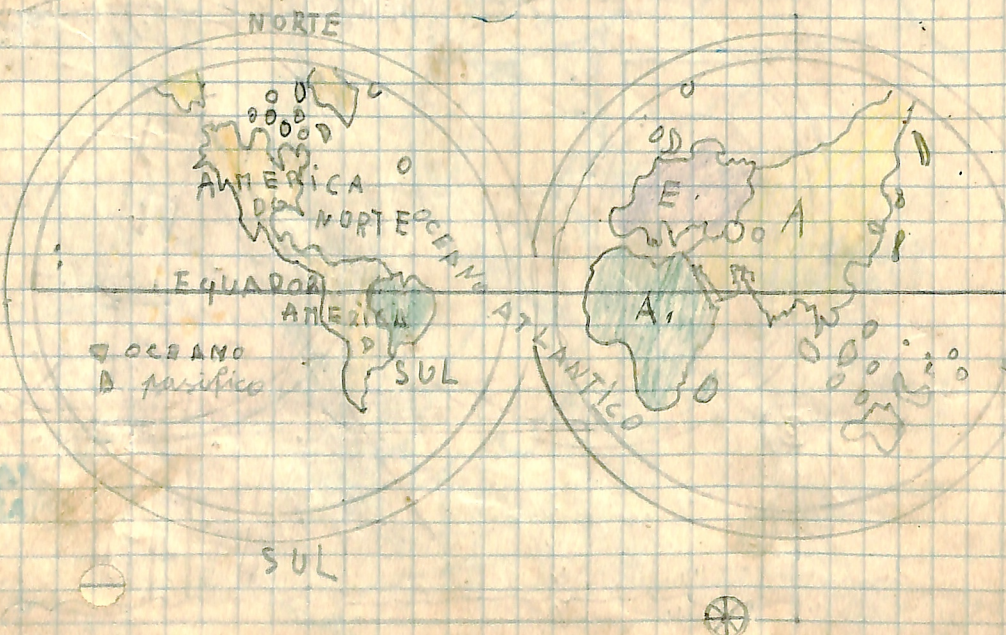 NORTE
AMERICA
NORTE
OCEANO ATLANTÍCO
EQUADOR
AMERICA
SUL
OCEANO
pasifico
SUL
E.
A
A.